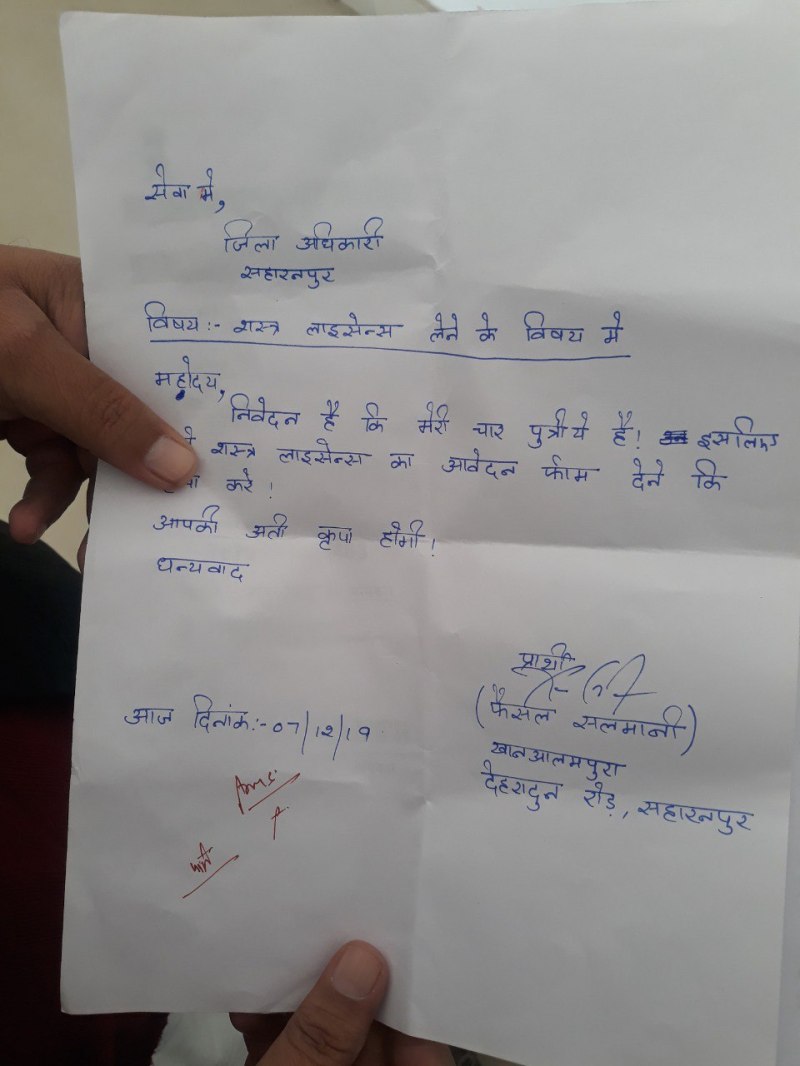 सेवा मे,
जिला अधिकारी
सहारनपुर
विषय:- शस्त्र लाइसेन्स लेने के विषय मे
महोदय,
निवेदन है कि मेरी चार पुत्रीये है! इसलिए
शस्त्र लाइसेन्स का आवेदन र्फाम देने कि
करे!
आपकी अती कृपा होगी!
धन्यवाद
प्रार्थी
(फैसल सलमानी)
खानआलमपुरा
देहरादुन रोड़, सहारनपुर
आज दिनांक:- 07/12/19
Arms